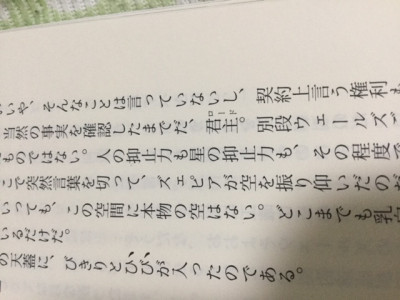 いや、そんなことは言っていないし、契約上言う権利も
当然の事実を確認したまでだ、君主。別段ウェールズ
ロード
ものではない。人の抑止力も星の抑止力も、その程度で
こで突然言葉を切って、ズェピアが空を振り仰いだのだ
いっても、この空間に本物の空はない。どこまでも乳白
いるだけだ。
の天蓋に、ぴきりとひびが入ったのである。